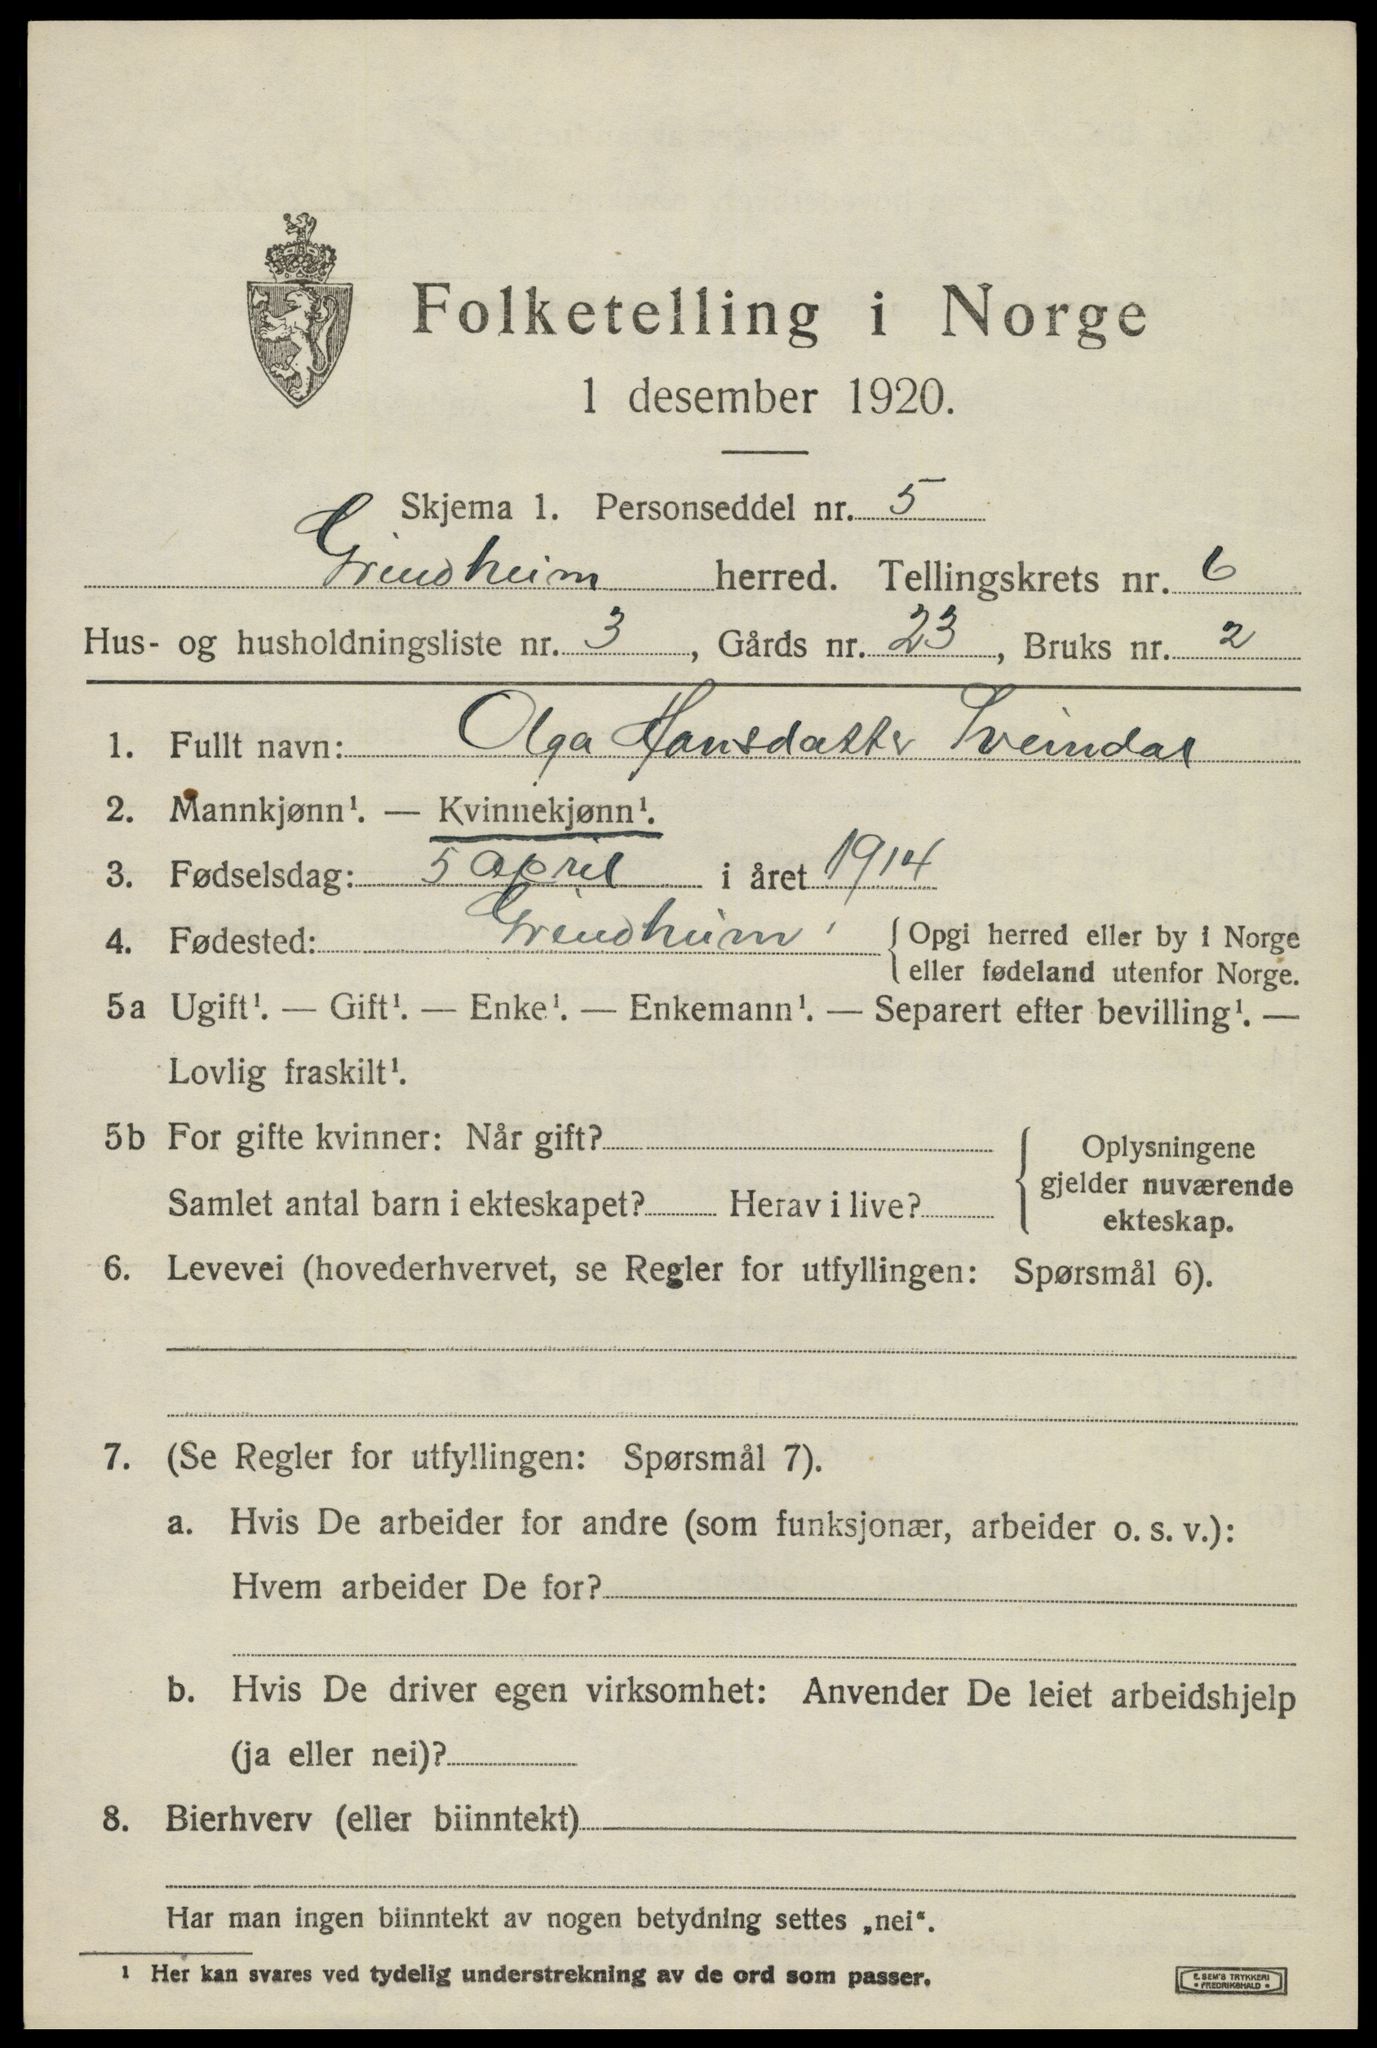 Folketelling i Norge
1 desember 1920.
Skjema 1. Personseddel nr. 5
Grindheim herred. Tellingskrets nr. 6
Hus- og husholdningsliste nr. 3, Gårds nr. 23, Bruks nr. 2
1. Fullt navn: Olga Hansdatter Sveindal
2. Mannkjønn¹. — Kvinnekjønn¹.
3. Fødselsdag: 5 april i året 1914
4. Fødested: Grindheim { Opgi herred eller by i Norge
eller fødeland utenfor Norge.
5a Ugift¹. — Gift¹. — Enke¹. — Enkemann¹. — Separert efter bevilling¹. —
Lovlig fraskilt¹.
5b For gifte kvinner: Når gift? { Oplysningene
gjelder nuværende
Samlet antal barn i ekteskapet? Herav i live? ekteskap.
6. Levevei (hovederhvervet, se Regler for utfyllingen: Spørsmål 6).
7. (Se Regler for utfyllingen: Spørsmål 7).
a. Hvis De arbeider for andre (som funksjonær, arbeider o. s. v.):
Hvem arbeider De for?
b. Hvis De driver egen virksomhet: Anvender De leiet arbeidshjelp
(ja eller nei)?
8. Bierhverv (eller biinntekt)
Har man ingen biinntekt av nogen betydning settes „nei“.
¹ Her kan svares ved tydelig understrekning av de ord som passer.
E. SEM'S TRYKKERI
• FREDRIKSHALD •